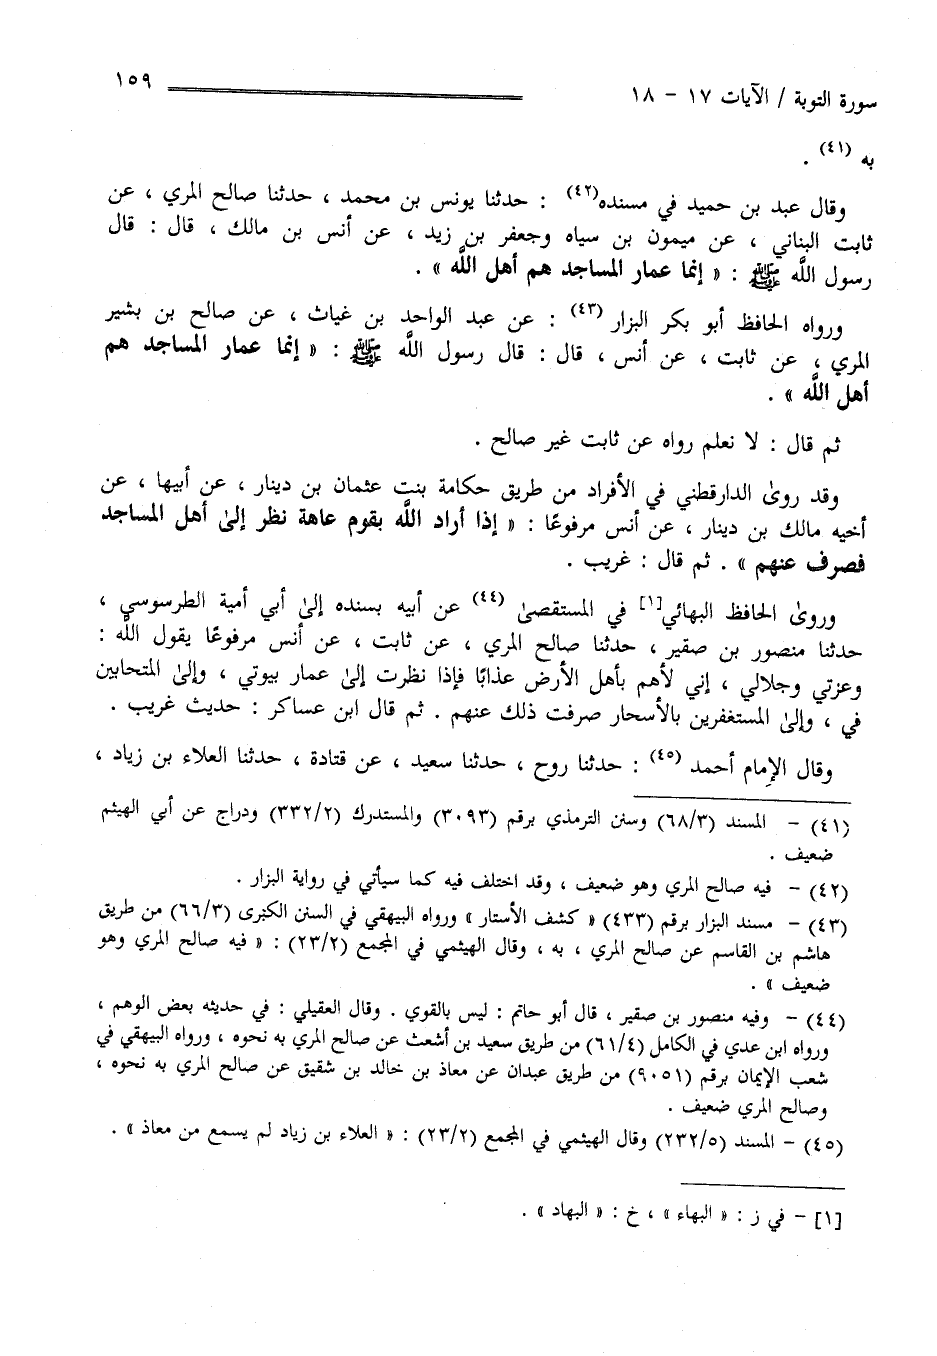 سورة التوبة / الآيات ١٧ - ١٨ ١٥٩
به (٤١) .
وقال عبد بن حميد في مسنده(٤٢) : حدثنا يونس بن محمد ، حدثنا صالح المري ، عن
ثابت البناني ، عن ميمون بن سياه وجعفر بن زيد ، عن أنس بن مالك ، قال : قال
رسول اللَّه ﷺ : « إنما عمار المساجد هم أهل اللَّه » .
ورواه الحافظ أبو بكر البزار (٤٣) : عن عبد الواحد بن غياث ، عن صالح بن بشير
المري ، عن ثابت ، عن أنس ، قال : قال رسول اللَّه ﷺ : « إنما عمار المساجد هم
أهل اللَّه » .
ثم قال : لا نعلم رواه عن ثابت غير صالح .
وقد روىٰ الدارقطني في الأفراد من طريق حكامة بنت عثمان بن دينار ، عن أبيها ، عن
أخيه مالك بن دينار ، عن أنس مرفوعًا : « إذا أراد اللَّه بقوم عاهة نظر إلىٰ أهل المساجد
فصرف عنهم » . ثم قال : غريب .
وروىٰ الحافظ البهائي[١] في المستقصىٰ (٤٤) عن أبيه بسنده إلىٰ أبي أمية الطرسوسي ،
حدثنا منصور بن صقير ، حدثنا صالح المري ، عن ثابت ، عن أنس مرفوعًا يقول اللَّه :
وعزتي وجلالي ، إني لأهم بأهل الأرض عذابًا فإذا نظرت إلىٰ عمار بيوتي ، وإلىٰ المتحابين
في ، وإلىٰ المستغفرين بالأسحار صرفت ذلك عنهم . ثم قال ابن عساكر : حديث غريب .
وقال الإمام أحمد (٤٥) : حدثنا روح ، حدثنا سعيد ، عن قتادة ، حدثنا العلاء بن زياد ،
(٤١) - المسند (٦٨/٣) وسنن الترمذي برقم (٣٠٩٣) والمستدرك (٣٣٢/٢) ودراج عن أبي الهيثم
ضعيف .
(٤٢) - فيه صالح المري وهو ضعيف ، وقد اختلف فيه كما سيأتي في رواية البزار .
(٤٣) - مسند البزار برقم (٤٣٣) « كشف الأستار » ورواه البيهقي في السنن الكبرى (٦٦/٣) من طريق
هاشم بن القاسم عن صالح المري ، به ، وقال الهيثمي في المجمع (٢٣/٢) : « فيه صالح المري وهو
ضعيف » .
(٤٤) - وفيه منصور بن صقير ، قال أبو حاتم : ليس بالقوي . وقال العقيلي : في حديثه بعض الوهم ،
ورواه ابن عدي في الكامل (٦١/٤) من طريق سعيد بن أشعث عن صالح المري به نحوه ، ورواه البيهقي في
شعب الإيمان برقم (٩٠٥١) من طريق عبدان عن معاذ بن خالد بن شقيق عن صالح المري به نحوه ،
وصالح المري ضعيف .
(٤٥) - المسند (٢٣٢/٥) وقال الهيثمي في المجمع (٢٣/٢) : « العلاء بن زياد لم يسمع من معاذ » .
[١] - في ز : « البهاء » ، خ : « البهاد » .